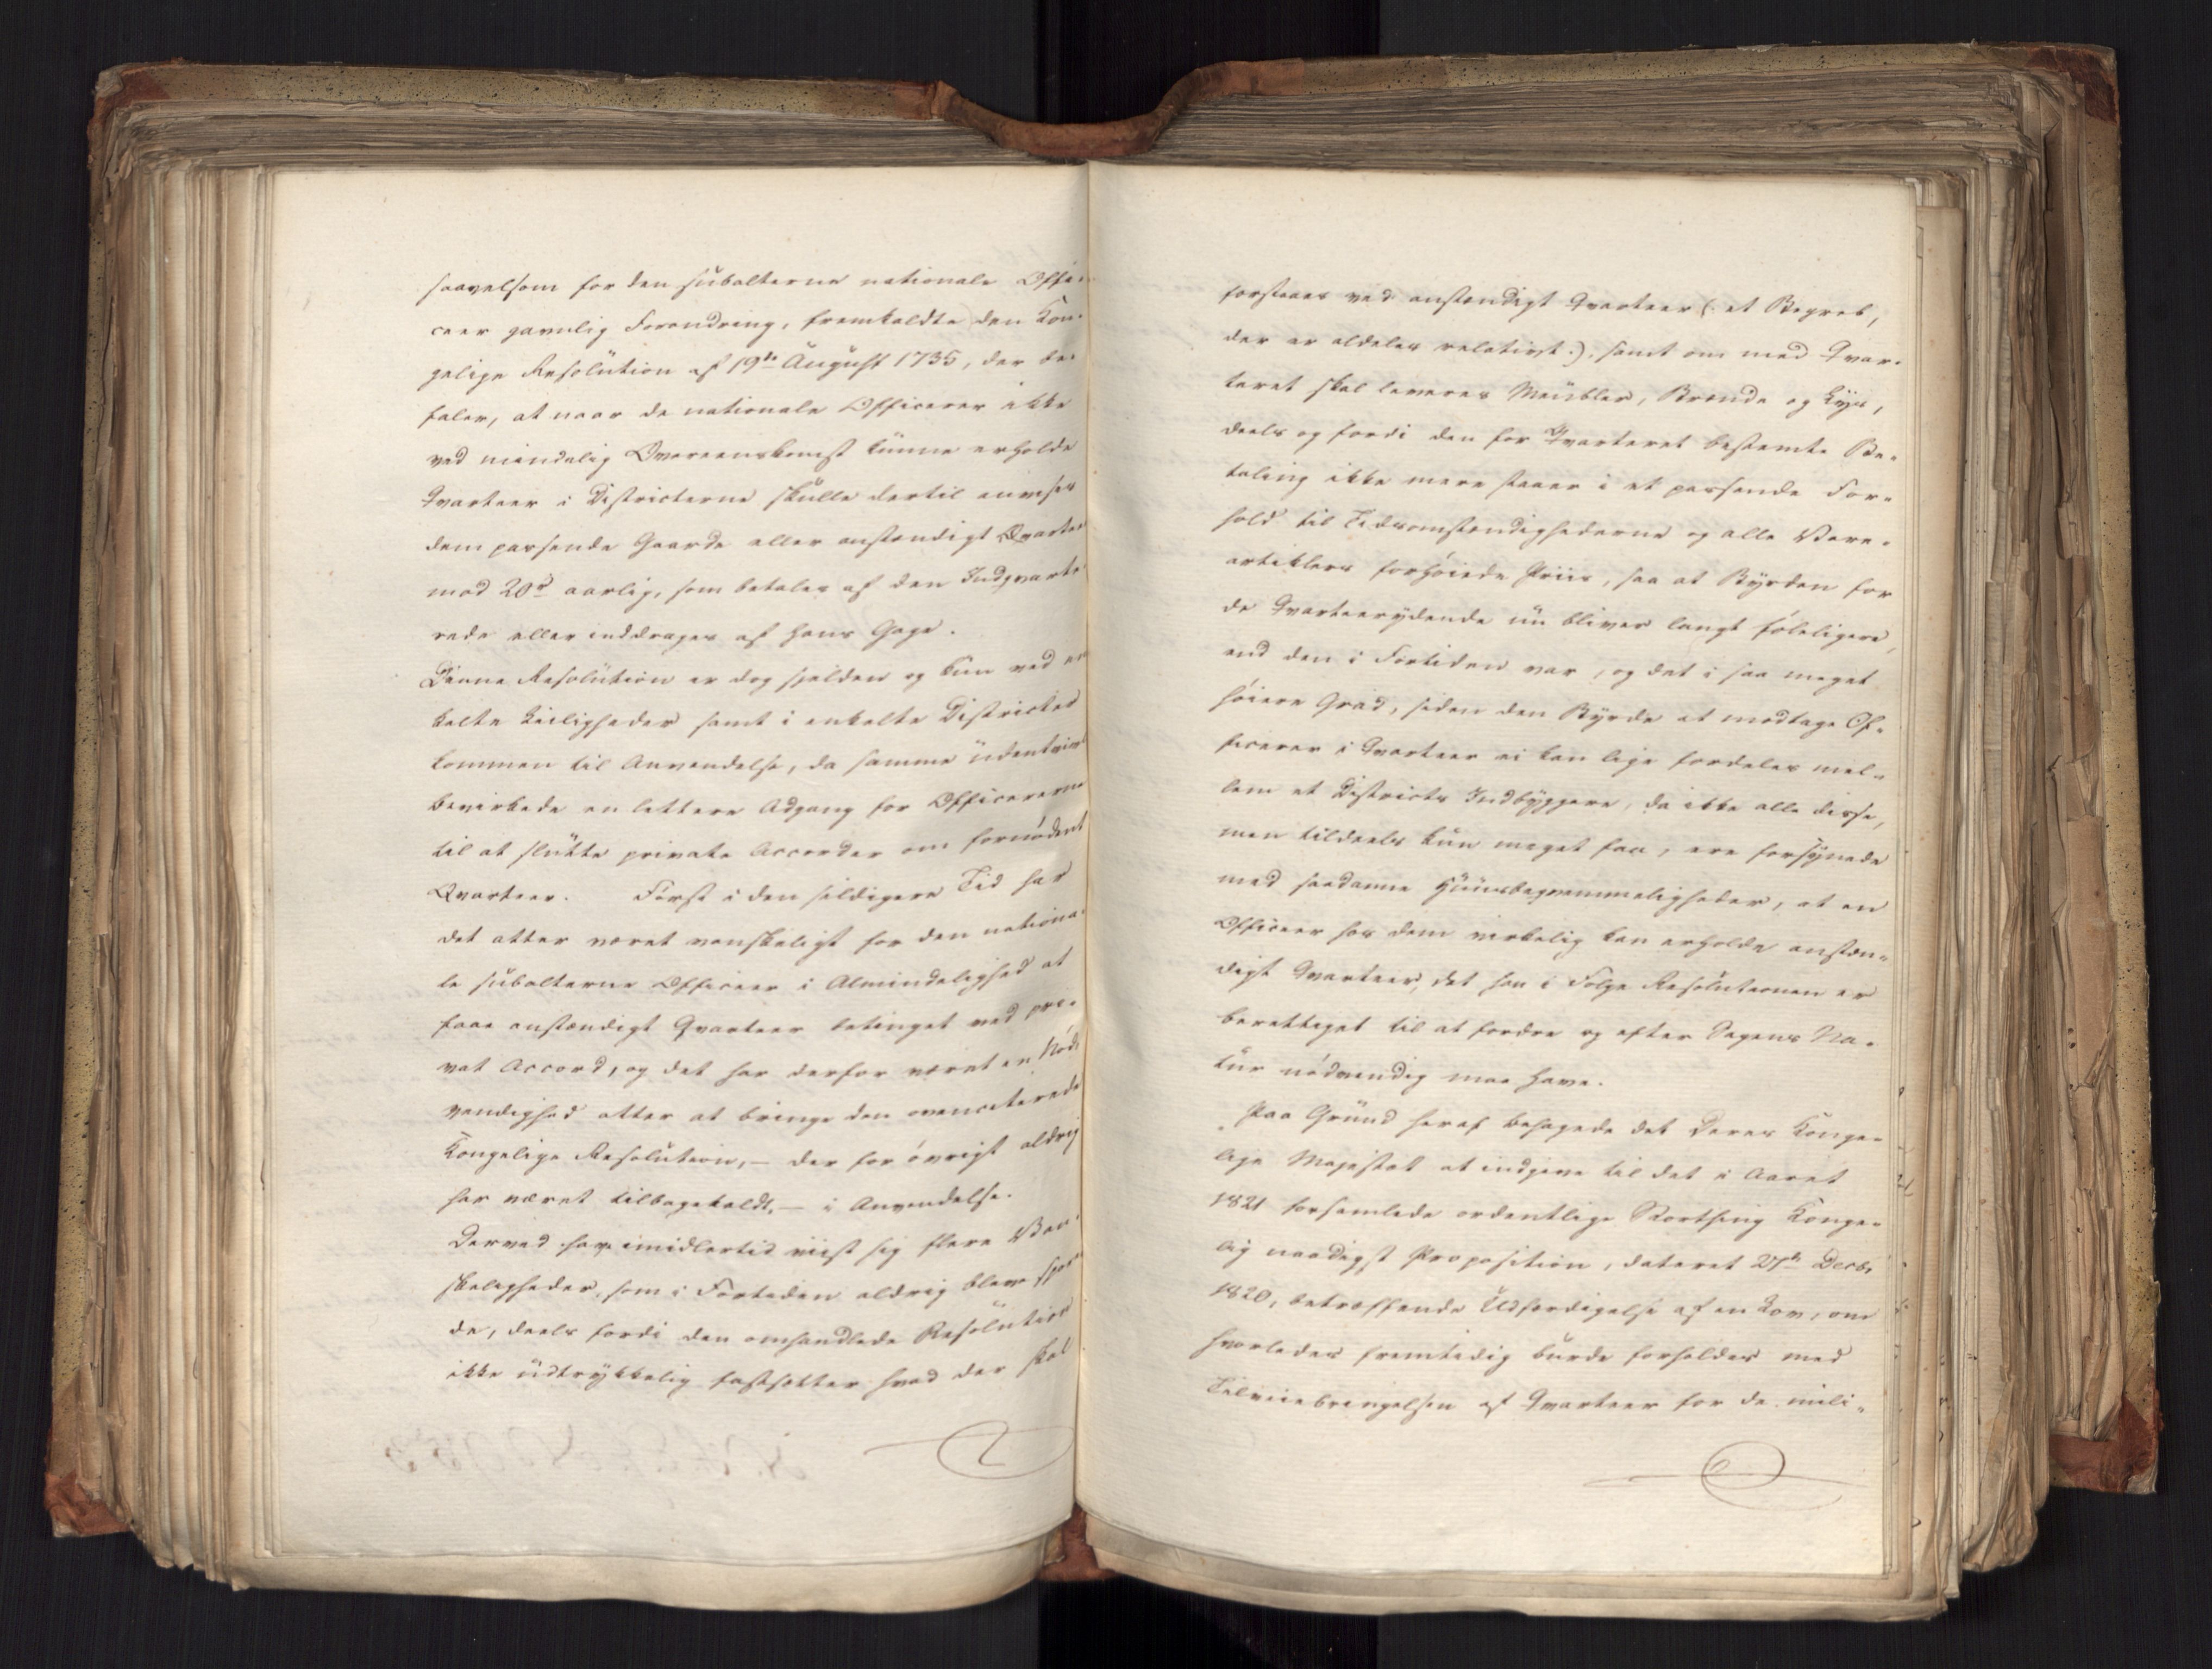 saavelsom for den subalterne nationale Offi-
ceer gavnlig Forandring, fremkaldte den Kon-
gelige Resolution af 19de August 1735, der be-
faler, at naar de nationale Officerer ikke
ved mindelig Overeenskomst kunne erholde
Qvarteer i Districterne skulle dertil anvises
dem passende Gaarde eller anstændigt Qvarteer
mod 20rd aarlig, som betales af den Indqvarte-
rede eller inddrages af hans Gage.
Denne Resolution er dog sjelden og kun ved en
kelte Leiligheder samt i enkelte Districter
kommen til Anvendelse, da samme udentvivl
bevirkede en lettere Adgang for Officererne
til at slutte private Accorder om fornødent
Qvarteer. Først i den sildigere Tid har
det atter været vanskeligt for den nationa-
le subalterne Officeer i Almindelighed at
faae anstændigt Qvarteer betinget ved pri-
vat Accord, og det har derfor været en Nød-
vendighed atter at bringe den ovenciterede
Kongelige Resolution, — der for øvrigt aldrig
har været tilbagekaldt, — i Anvendelse.
Derved har imidlertid viist sig flere Van-
skeligheder, som i Fortiden aldrig bleve spor
de, deels fordi den omhandlede Resolution
ikke udtrykkelig fastsætter hvad der skal
forstaaes ved anstændigt Qvarteer (: et Begreb,
der er aldeles relativt :), samt om med Qvar-
teret skal leveres Meubler, Brænde og Lys,
deels og fordi den for Qvarteret bestemte Be-
taling ikke mere staaer i et passende For-
hold til Tidsomstændighederne og alle Vare-
artiklers forhøiede Priis, saa at Byrden for
de Qvarteerydende nu bliver langt føleligere,
end den i Fortiden var, og det i saa meget
høiere Grad, siden den Byrde at modtage Of-
ficerer i Qvarteer ei kan lige fordeles mel-
lem et Districts Indbyggere, da ikke alle disse,
men tildeels kun meget faa, ere forsynede
med saadanne Huusbeqvemmeligheder, at en
Officeer hos dem virkelig kan erholde anstæn-
digt Qvarteer, det han i Følge Resolutionen er
berettiget til at fordre og efter Sagens Na-
tur nødvendig maa have.
Paa Grund heraf behagede det Deres Konge-
lige Majestæt at indgive til det i Aaret
1821 forsamlede ordentlige Storthing Konge-
lig naadigst Proposition, dateret 27de Decbr
1820, betræffende Udfærdigelse af en Lov, om
hvorledes fremtidig burde forholdes med
Tilveiebringelsen af Qvarteer for de mili-